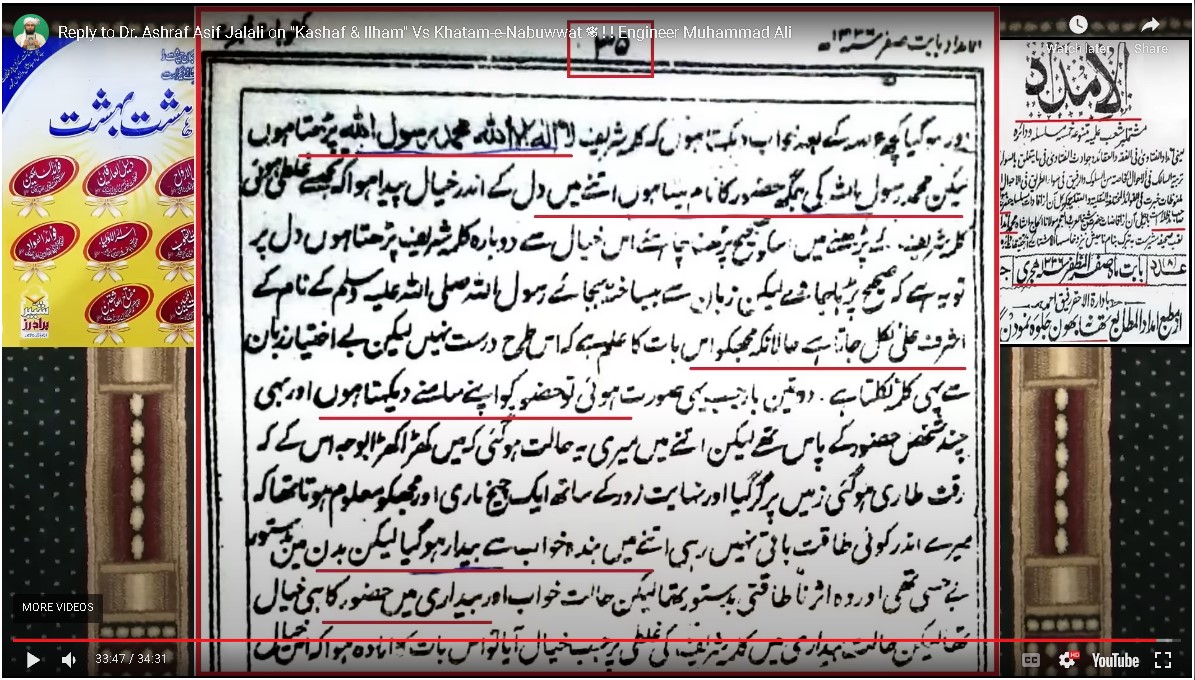 Reply to Dr. Ashraf Asif Jalali on "Kashaf & Ilham" Vs Khatam-e-Nabuwwat ! ! Engineer Muhammad Ali
Watch later
Share
۳۵
الامداد بابت صفر ۱۳۳۶ھ
دور ہو گیا کچھ عرصہ کے بعد خواب دیکھتا ہوں کہ کلمہ شریف لا الہ الا اللہ محمد رسول اللہ پڑھتا ہوں
لیکن محمد رسول اللہ کی جگہ حضور کا نام لیتا ہوں اتنے میں دل کے اندر خیال پیدا ہوا کہ مجھسے غلطی ہوئی
کلمہ شریف کے پڑھنے میں اسکو صحیح پڑھنا چاہئے اس خیال سے دوبارہ کلمہ شریف پڑھتا ہوں دل پر
تو یہ ہے کہ صحیح پڑھا جاوے لیکن زبان سے بیساختہ بجائے رسول اللہ صلی اللہ علیہ وسلم کے نام کے
اشرف علی نکل جاتا ہے حالانکہ مجھکو اس بات کا علم ہے کہ اس طرح درست نہیں لیکن بے اختیار زبان
سے یہی کلمہ نکلتا ہے۔ دو تین بار جب یہی صورت ہوئی تو حضور کو اپنے سامنے دیکھتا ہوں اور بھی
چند شخص حضور کے پاس تھے لیکن اتنے میں میری یہ حالت ہو گئی کہ میں کھڑا کھڑا بوجہ اس کے کہ
رقت طاری ہو گئی زمین پر گر گیا اور نہایت زور کے ساتھ ایک چیخ ماری اور مجھکو معلوم ہوتا تھا کہ
میرے اندر کوئی طاقت باقی نہیں رہی اتنے میں بندہ خواب سے بیدار ہو گیا لیکن بدن میں بدستور
بے حسی تھی اور وہ اثر ناطاقتی بدستور تھا لیکن حالت خواب اور بیداری میں حضور کا ہی خیال
تھا لیکن حالت بیداری میں کلمہ شریف کی غلطی پر جب خیال آیا تو اس بات کا ارادہ ہوا کہ اس خیال
ہشت بہشت
فوائد السالکین
دلیل العارفین
فوائد الفواد
اسرار الاولیاء
شبیر برادرز
الامداد
بابت ماہ صفر المظفر ۱۳۳۶ ہجری
MORE VIDEOS
33:47 / 34:31
CC
HD
YouTube